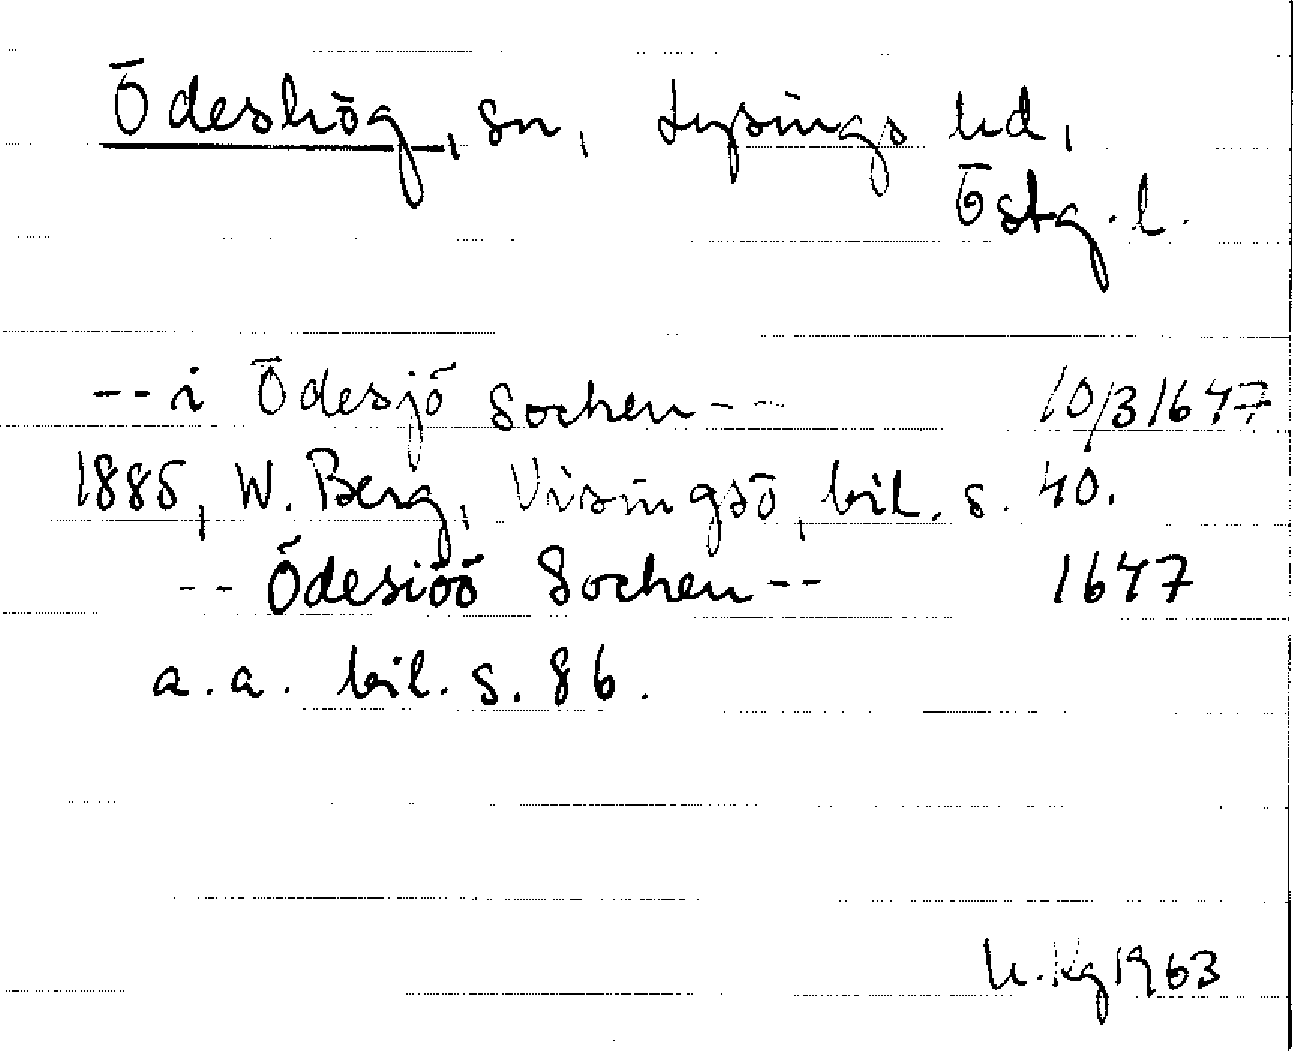 Ödeshög, sn, Lysings hd,
Östg. l.
-- i Ödesjö Sochen -- 10/3 1647
1885, W. Berg, Visingsö, bil. s. 40.
-- Ödesiöö Sochen -- 1647
a. a. bil. s. 86.
h. Kg 1963